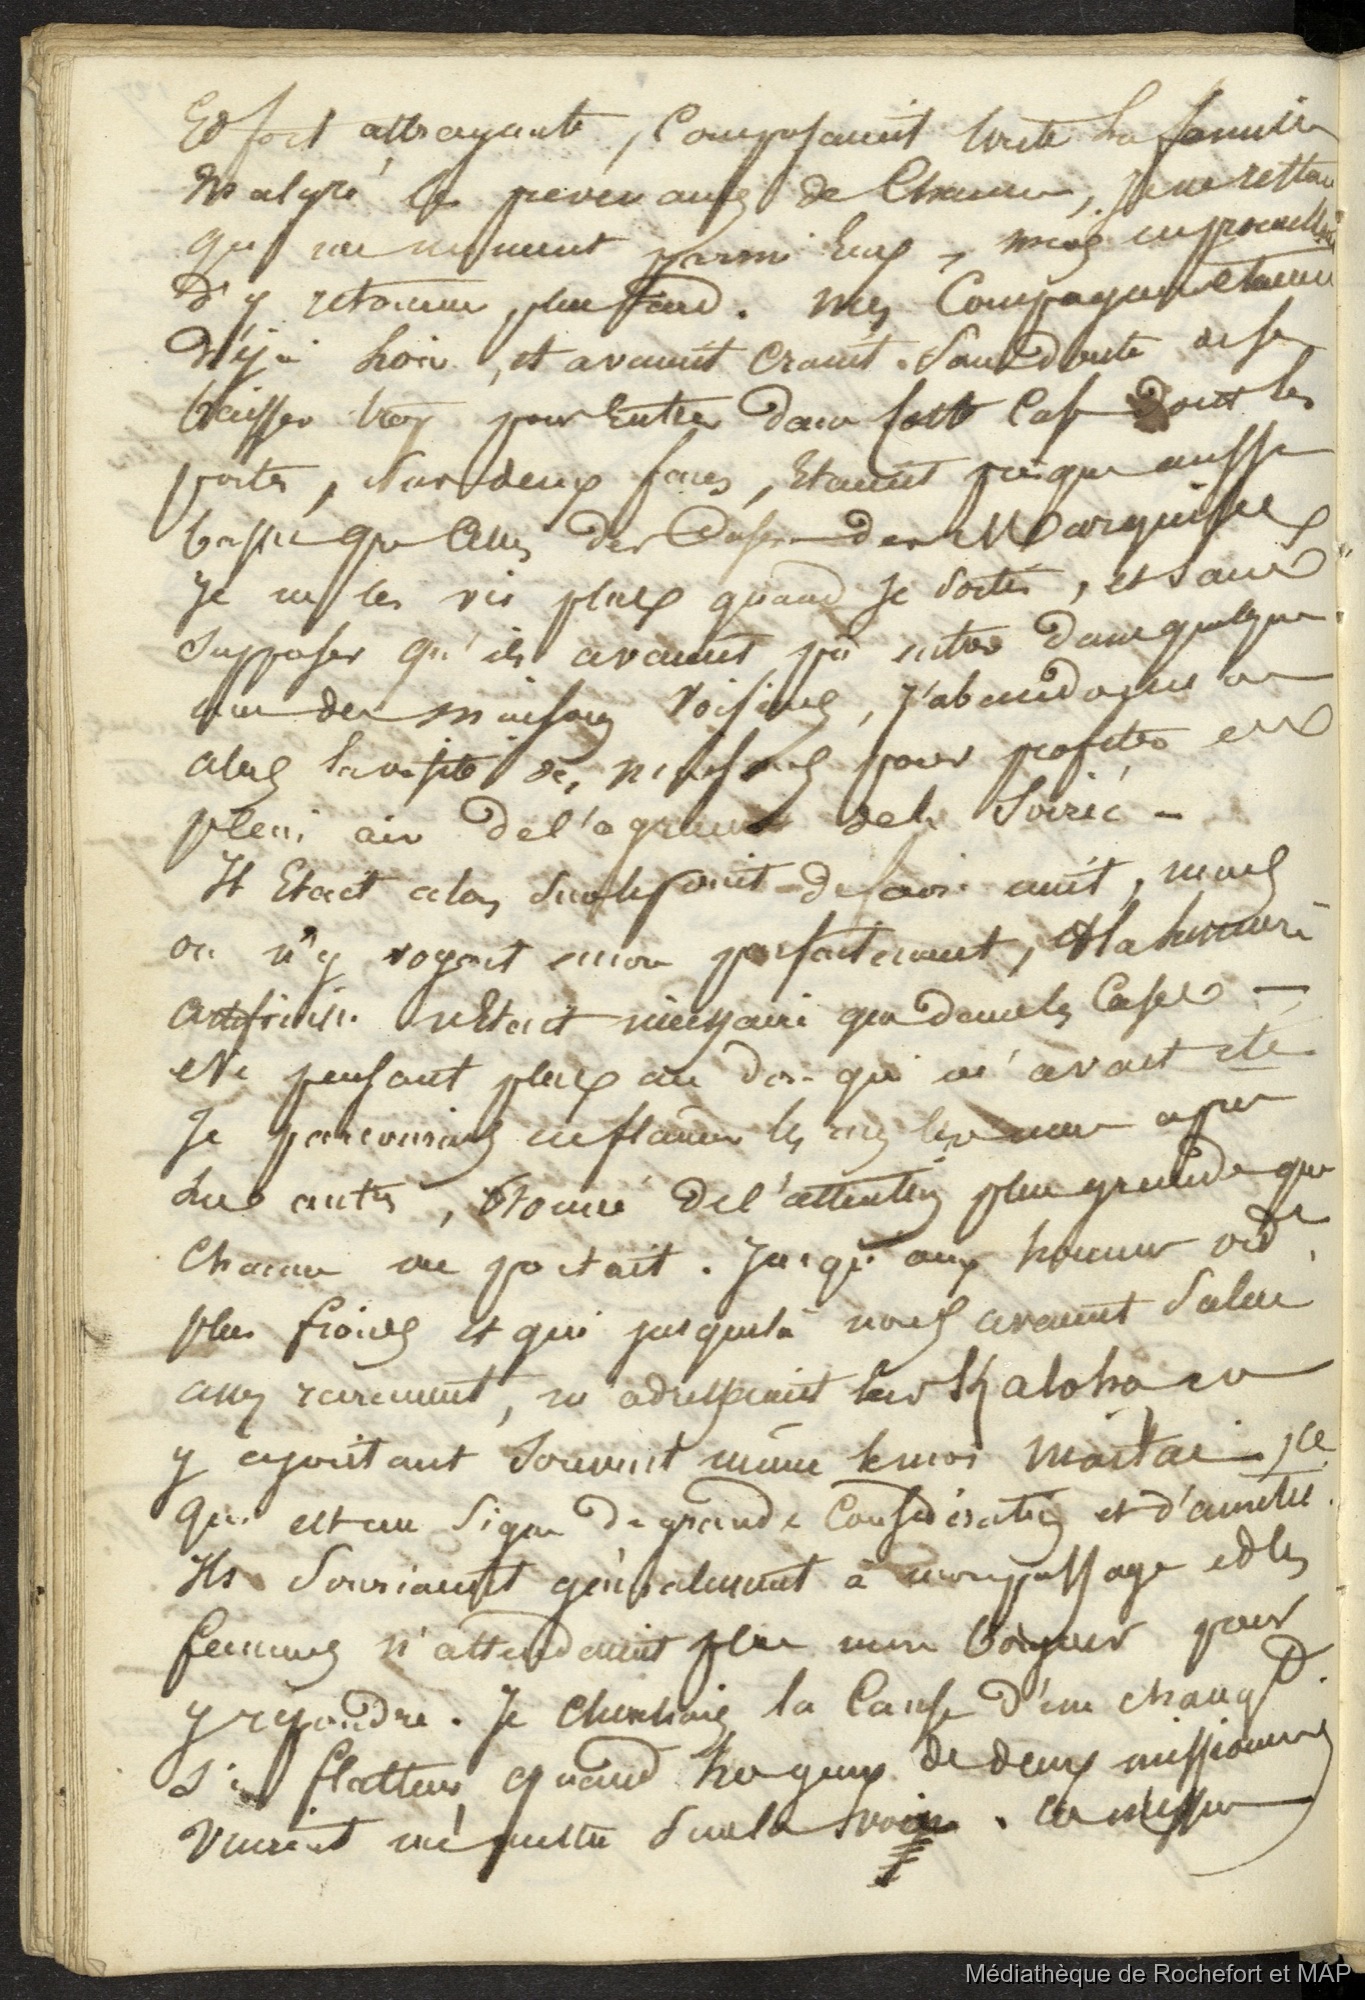 Et fort attrayante, Composaient toute la famille
Malgré les prévenances de Chacune, je ne restai
qu'un moment parmi Eux, mais en promettant
d'y retourner plus tard. Mes Compagnons étaient
Déjà loin, et avaient craint Sans doute de se
baisser trop pour Entrer dans cette Case dont les
portes, Sur deux faces, Etaient presque aussi
basses que Celles des Cases des Marquises
Je ne les vis plus quand Je Sortis, et Sans
Supposer qu'ils avaient pû entrer dans quelque
une des maisons Voisines, J'abandonnai
alors la visite des maisons pour profiter en
plein air De l'agrément de la Soirée -
Il Etait alors Sur le point de faire nuit, mais
on n'y voyait encore parfaitement, Et la lumière
artificielle n'Etait nécessaire que dans les Cases —
Ne pensant plus au don qui m'avait été
Je parcourais en flaneur les rues les unes après
les autres, Etonné De l'attention plus grande que
Chacun me portait. Jusqu'aux hommes
plus froids et qui jusques là nous avaient Salué
assez rarement, m'adressaient leur Kaloha en
y ajoutant Souvent même le mot Maitai, ce
qui est un Signe De grande Considération et d'amitié.
Ils Souriaient généralement à mon passage et les
femmes n'attendaient plus mon bonjour pour
y répondre. Je Cherchais la Cause d'un changt
Si flatteur quand les gens de deux missionnaires
Vinrent me mettre Sur la voie. Ces messieurs
Médiathèque de Rochefort et MAP